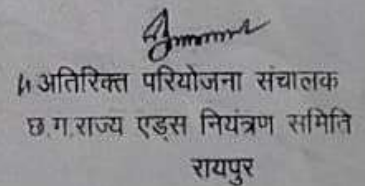 अतिरिक्त परियोजना संचालक
छ.ग.राज्य एड्स नियंत्रण समिति
रायपुर